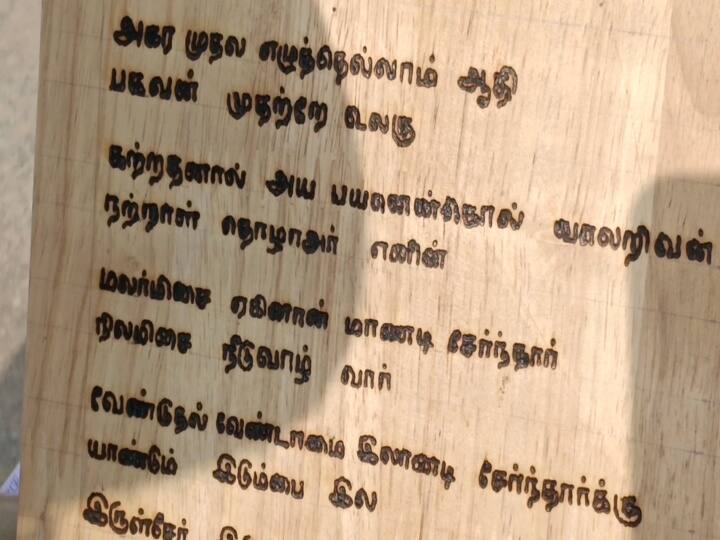 அகர முதல எழுத்தெல்லாம் ஆதி
பகவன் முதற்றே உலகு
கற்றதனால் அய பயனென்கொல் வாலறிவன்
நற்றாள் தொழாஅர் எனின்
மலர்மிசை ஏகினான் மாணடி சேர்ந்தார்
நிலமிசை நீடுவாழ் வார்
வேண்டுதல் வேண்டாமை இலானடி சேர்ந்தார்க்கு
யாண்டும் இடும்பை இல
இருள்சேர்